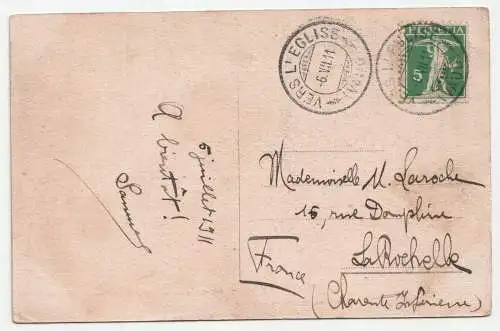 5 juillet 1911
A bientôt!
VERS L'EGLISE
-6.VII.11
HELVETIA
5
Mademoiselle M. Laroche
15, rue Dauphine
La Rochelle
(Charente Inférieure)
France